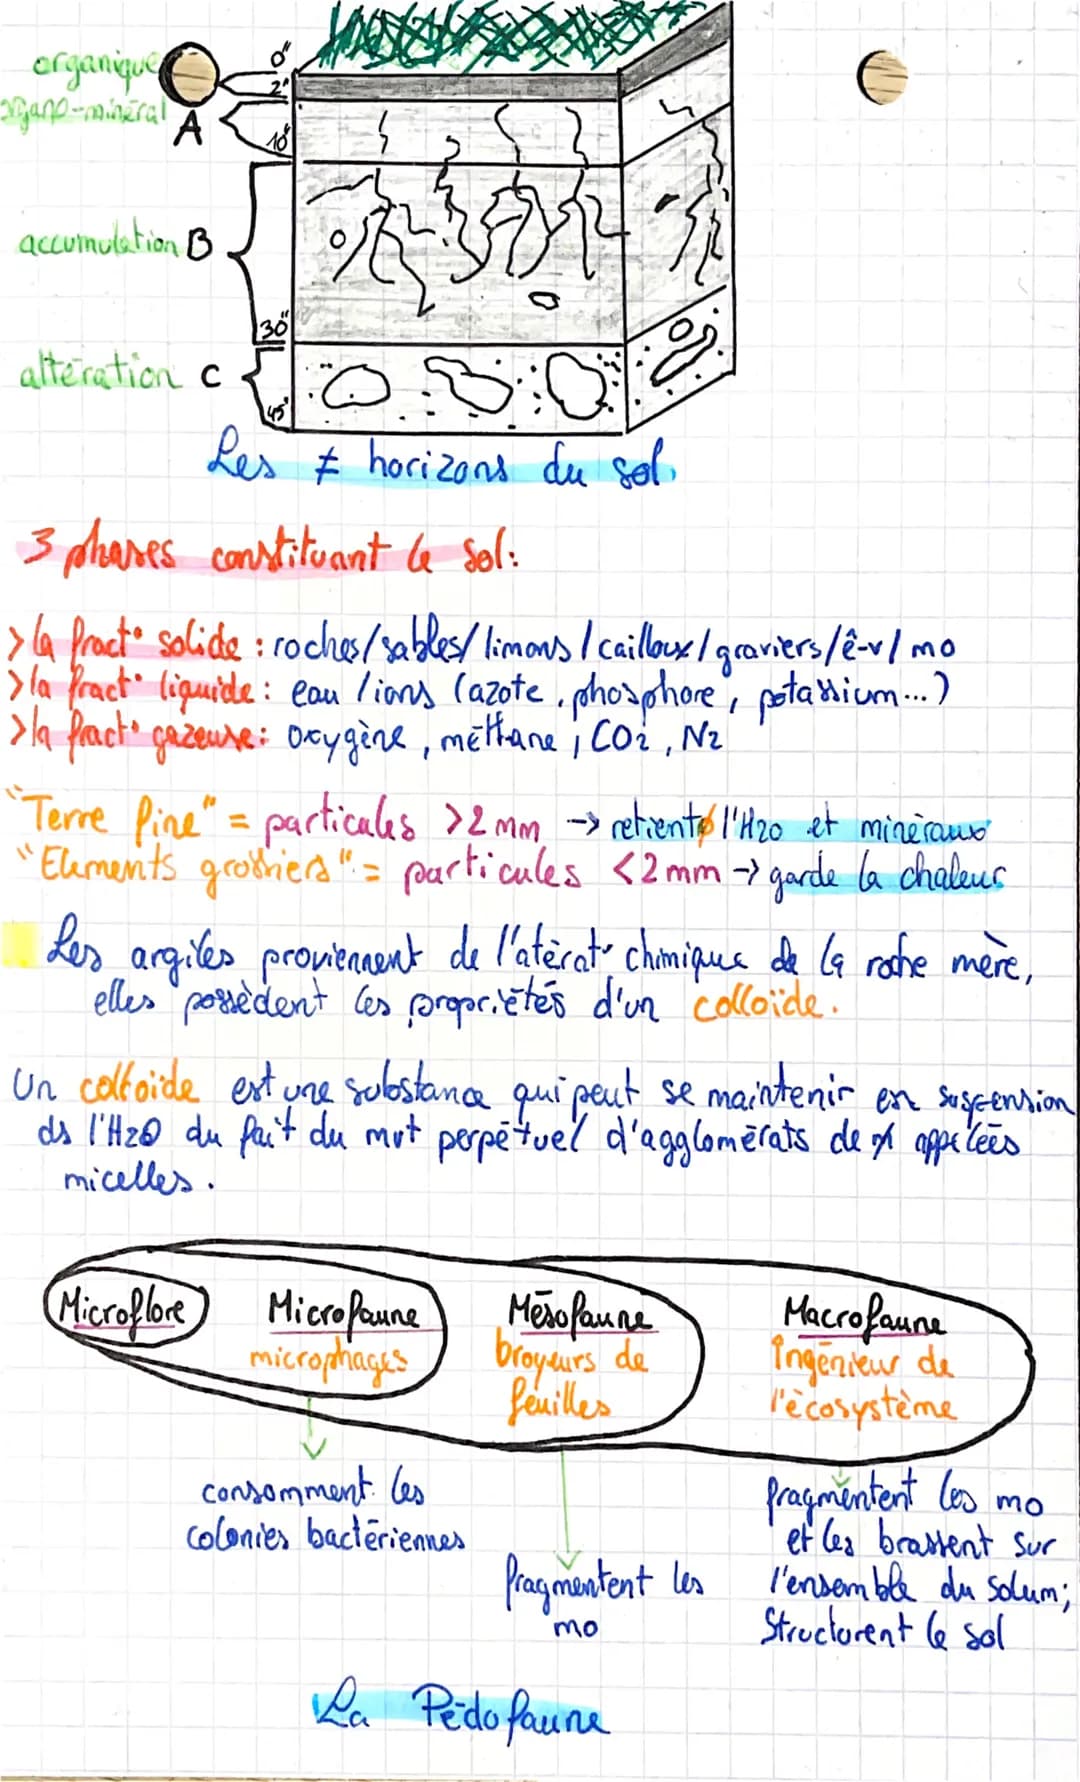 organique
0"
2"
organo-minéral
A
10"
accumulation B
30"
altération C
45"
Les ≠ horizons du sol.
3 phases constituant le sol:
>la fract° solide : roches/sables/limons/cailloux/graviers/ê-v/mo
>la fract° liquide : eau/ions (azote, phosphore, potassium...)
>la fract° gazeuse : oxygène, méthane, CO2, N2
"Terre fine" = particules >2mm → retient l'H2O et minéraux
"Elements grossiers" = particules <2mm → garde la chaleur
Les argiles proviennent de l'atérat° chimique de la roche mère,
elles possèdent les propriétés d'un colloïde.
Un colloïde est une substance qui peut se maintenir en suspension
ds l'H2O du fait du mvt perpétuel d'agglomérats de appelées
micelles.
Microflore
Microfaune
microphages
Mésofaune
broyeurs de
feuilles
Macrofaune
Ingénieur de
l'écosystème
consomment les
colonies bactériennes
fragmentent les
mo
fragmentent les mo
et les brassent sur
l'ensemble du solum;
Structurent le sol
La Pédofaune